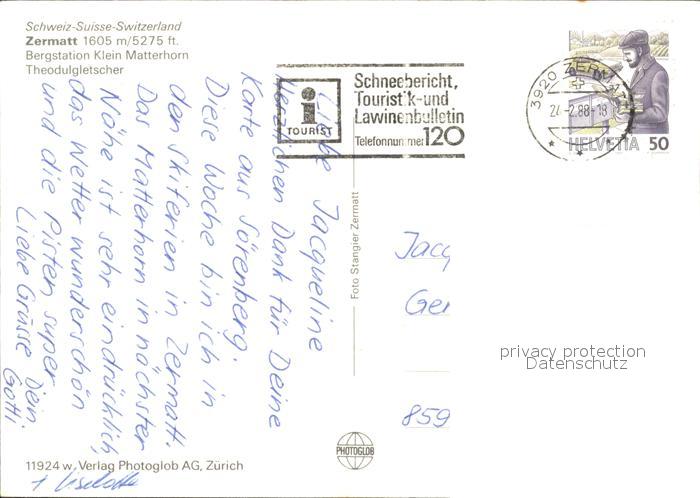 Schweiz-Suisse-Switzerland
Zermatt 1605 m/5275 ft.
Bergstation Klein Matterhorn
Theodulgletscher
Liebe Jacqueline
Herzlichen Dank für Deine
Karte aus Sörenberg.
Diese Woche bin ich in
den Skiferien in Zermatt.
Das Matterhorn in nächster
Nähe ist sehr eindrücklich,
das Wetter wunderschön
und die Pisten super
Liebe Grüsse Dein
Gotti
Liselotte
11924 w. Verlag Photoglob AG, Zürich
i
TOURIST
Schneebericht,
Touristik-und
Lawinenbulletin
Telefonnummer 120
3920 ZERMATT
HELVETIA 50
Foto Stangier Zermatt
Jacq
Ger
859
privacy protection
Datenschutz
PHOTOGLOB